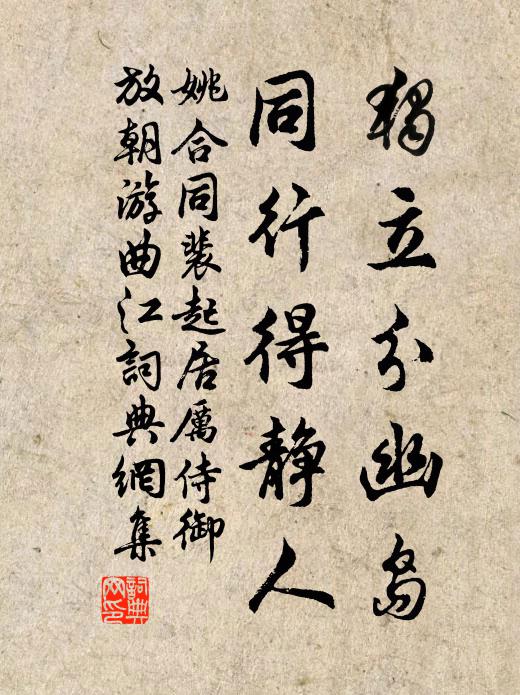 獨立分幽島
同行得靜人
姚合同裴起居厲侍御
放朝游曲江詞典網集
詞典
网印